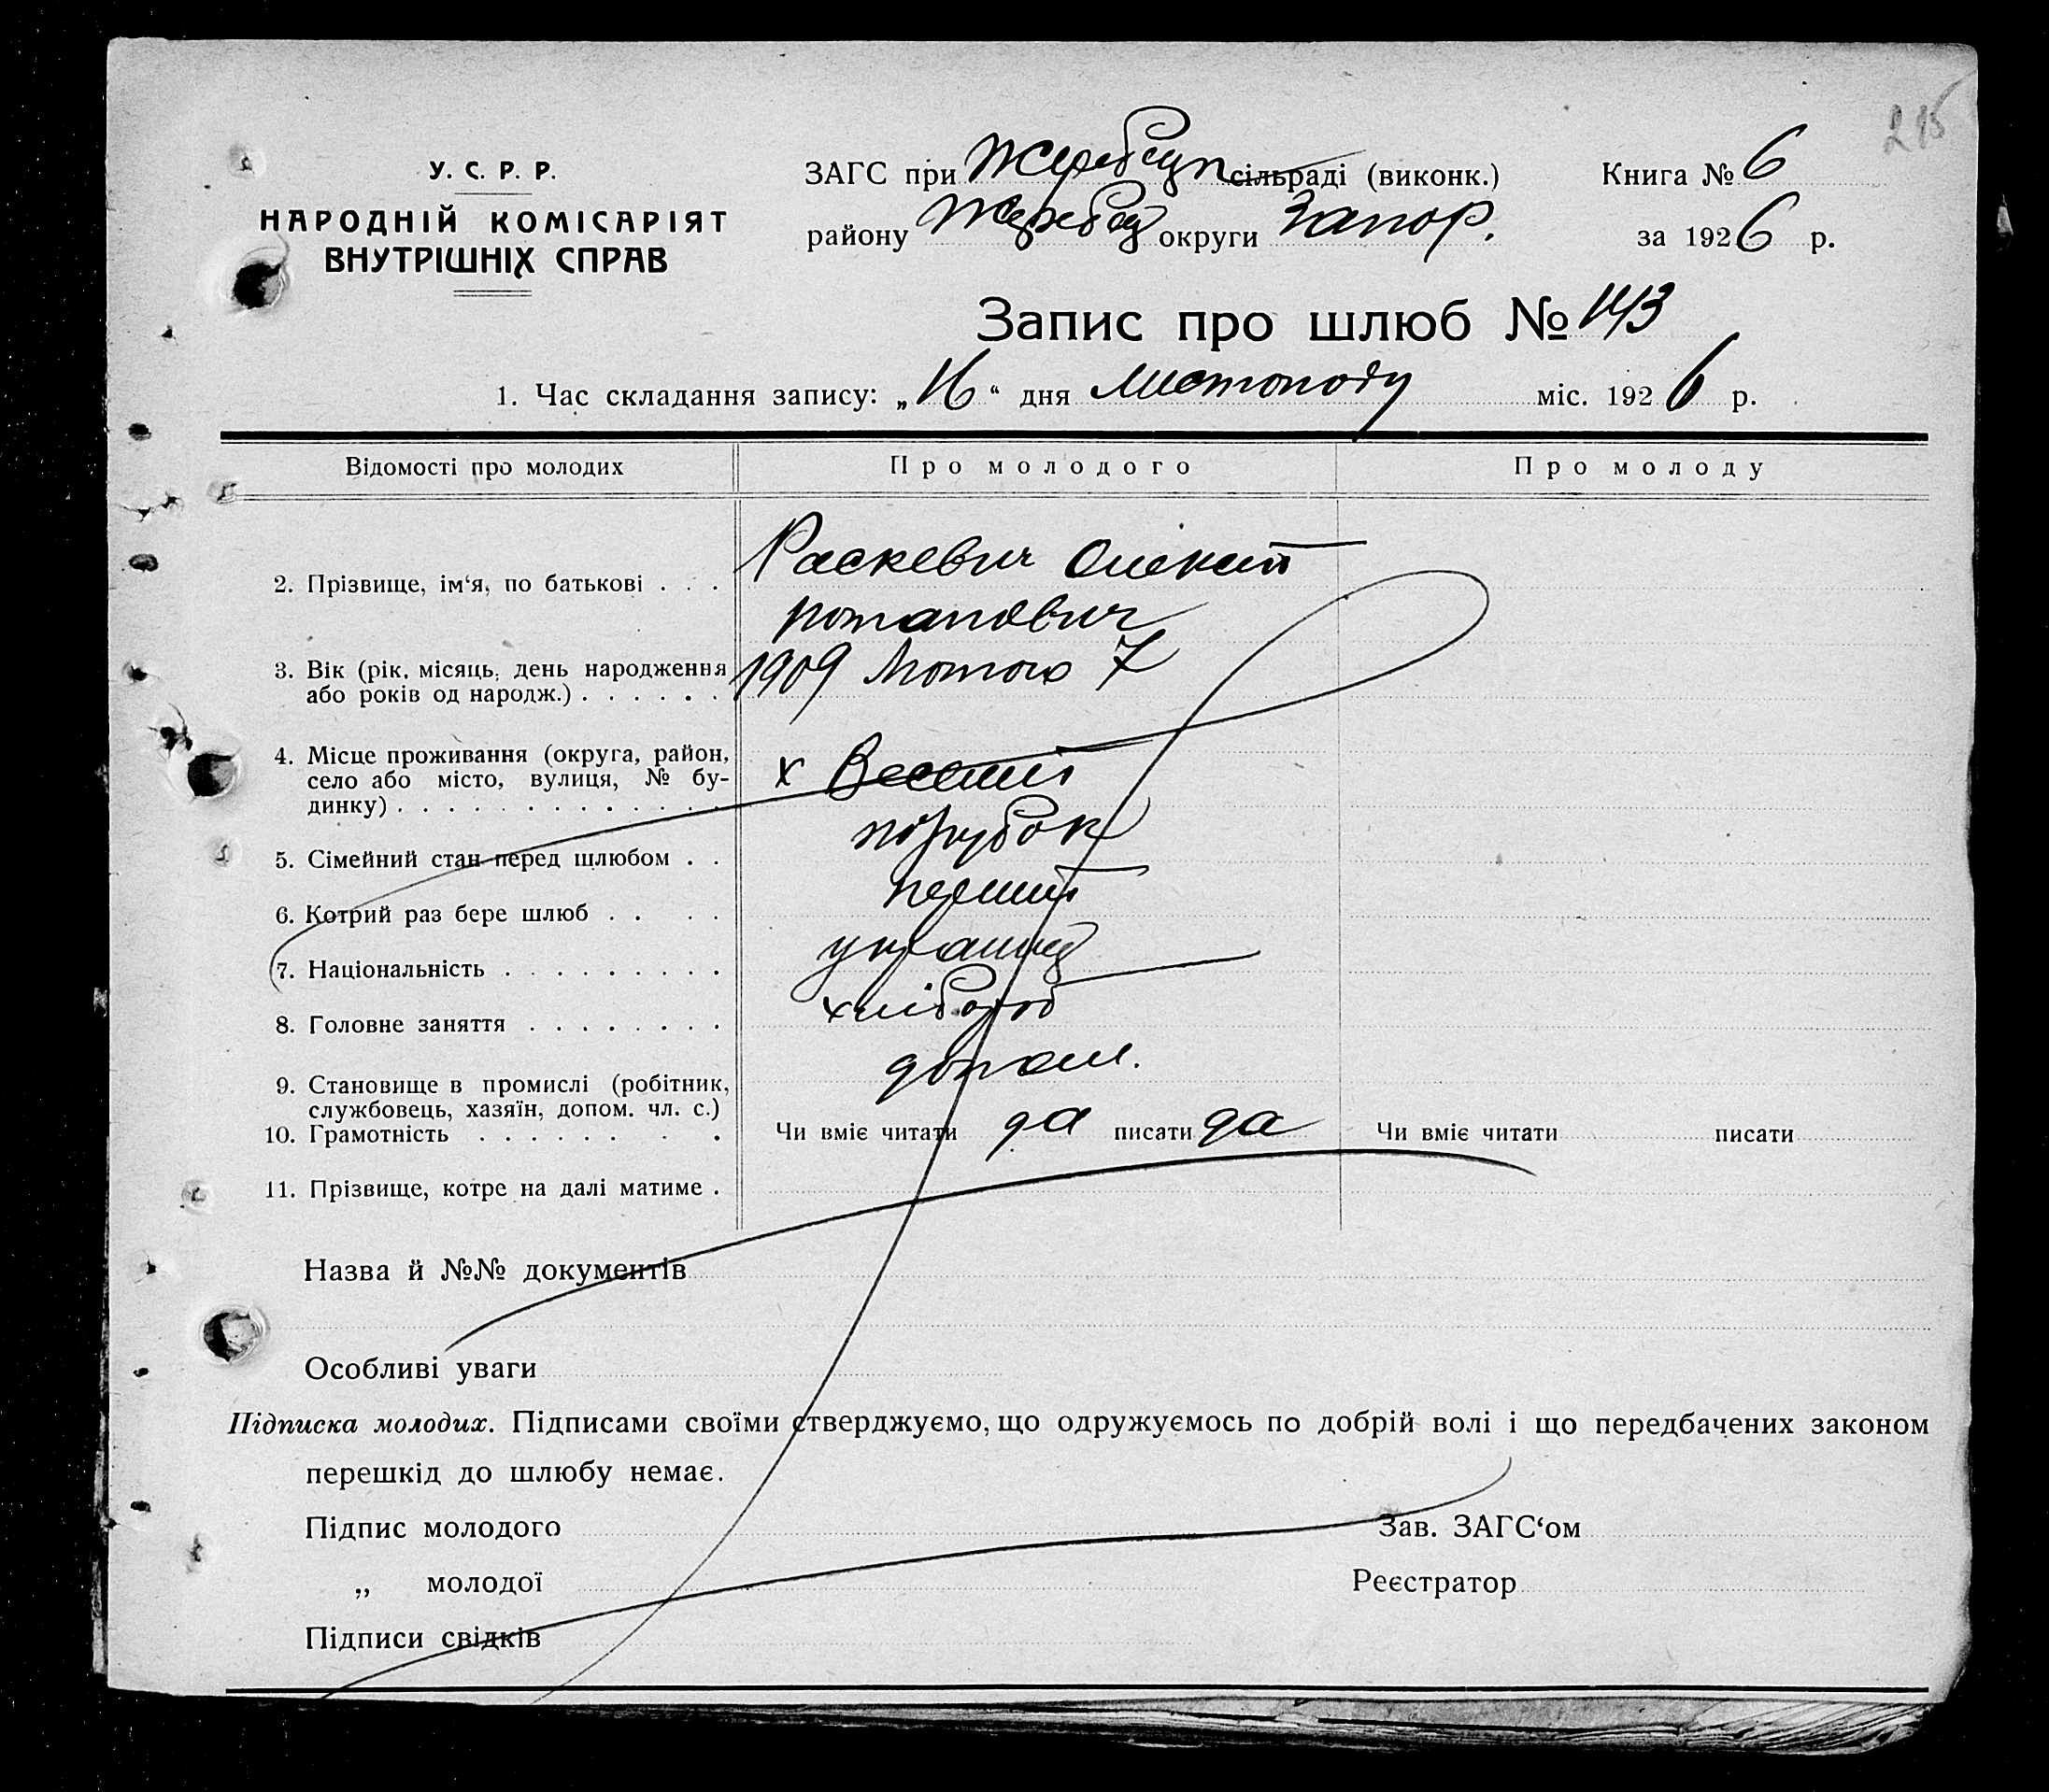 215
У. С. Р. Р.
НАРОДНІЙ КОМІСАРІЯТ
ВНУТРІШНІХ СПРАВ
ЗАГС при Жеребецп сільраді (виконк.) Книга № 6
району Жеребец округи Запор. за 1926 р.
Запис про шлюб № 143
1. Час складання запису: „16“ дня листоподу міс. 1926 р.
Відомості про молодих Про молодого Про молоду
2. Прізвище, ім‘я, по батькові . . . Раскевич
потапович
3. Вік (рік, місяць, день народження 1909 Лютого 7
або років од народж.) . . . . . .
4. Місце проживання (округа, район,
село або місто, вулиця, № бу- х Веселий
динку) . . . . . . . . . . . . .
5. Сімейний стан перед шлюбом . . порубок
6. Котрий раз бере шлюб . . . . перший
7. Національність . . . . . . . . . українец
8. Головне заняття . . . . . . . . хлібороб
9. Становище в промислі (робітник, допом.
службовець, хазяїн, допом. чл. с.)
10. Грамотність . . . . . . . . Чи вміє читати да писати да Чи вміє читати писати
11. Прізвище, котре на далі матиме .
Назва й №№ документів
Особливі уваги
Підписка молодих. Підписами своїми стверджуємо, що одружуємось по добрій волі і що передбачених законом
перешкід до шлюбу немає.
Підпис молодого Зав. ЗАГС‘ом
„ молодої Реєстратор
Підписи свідків